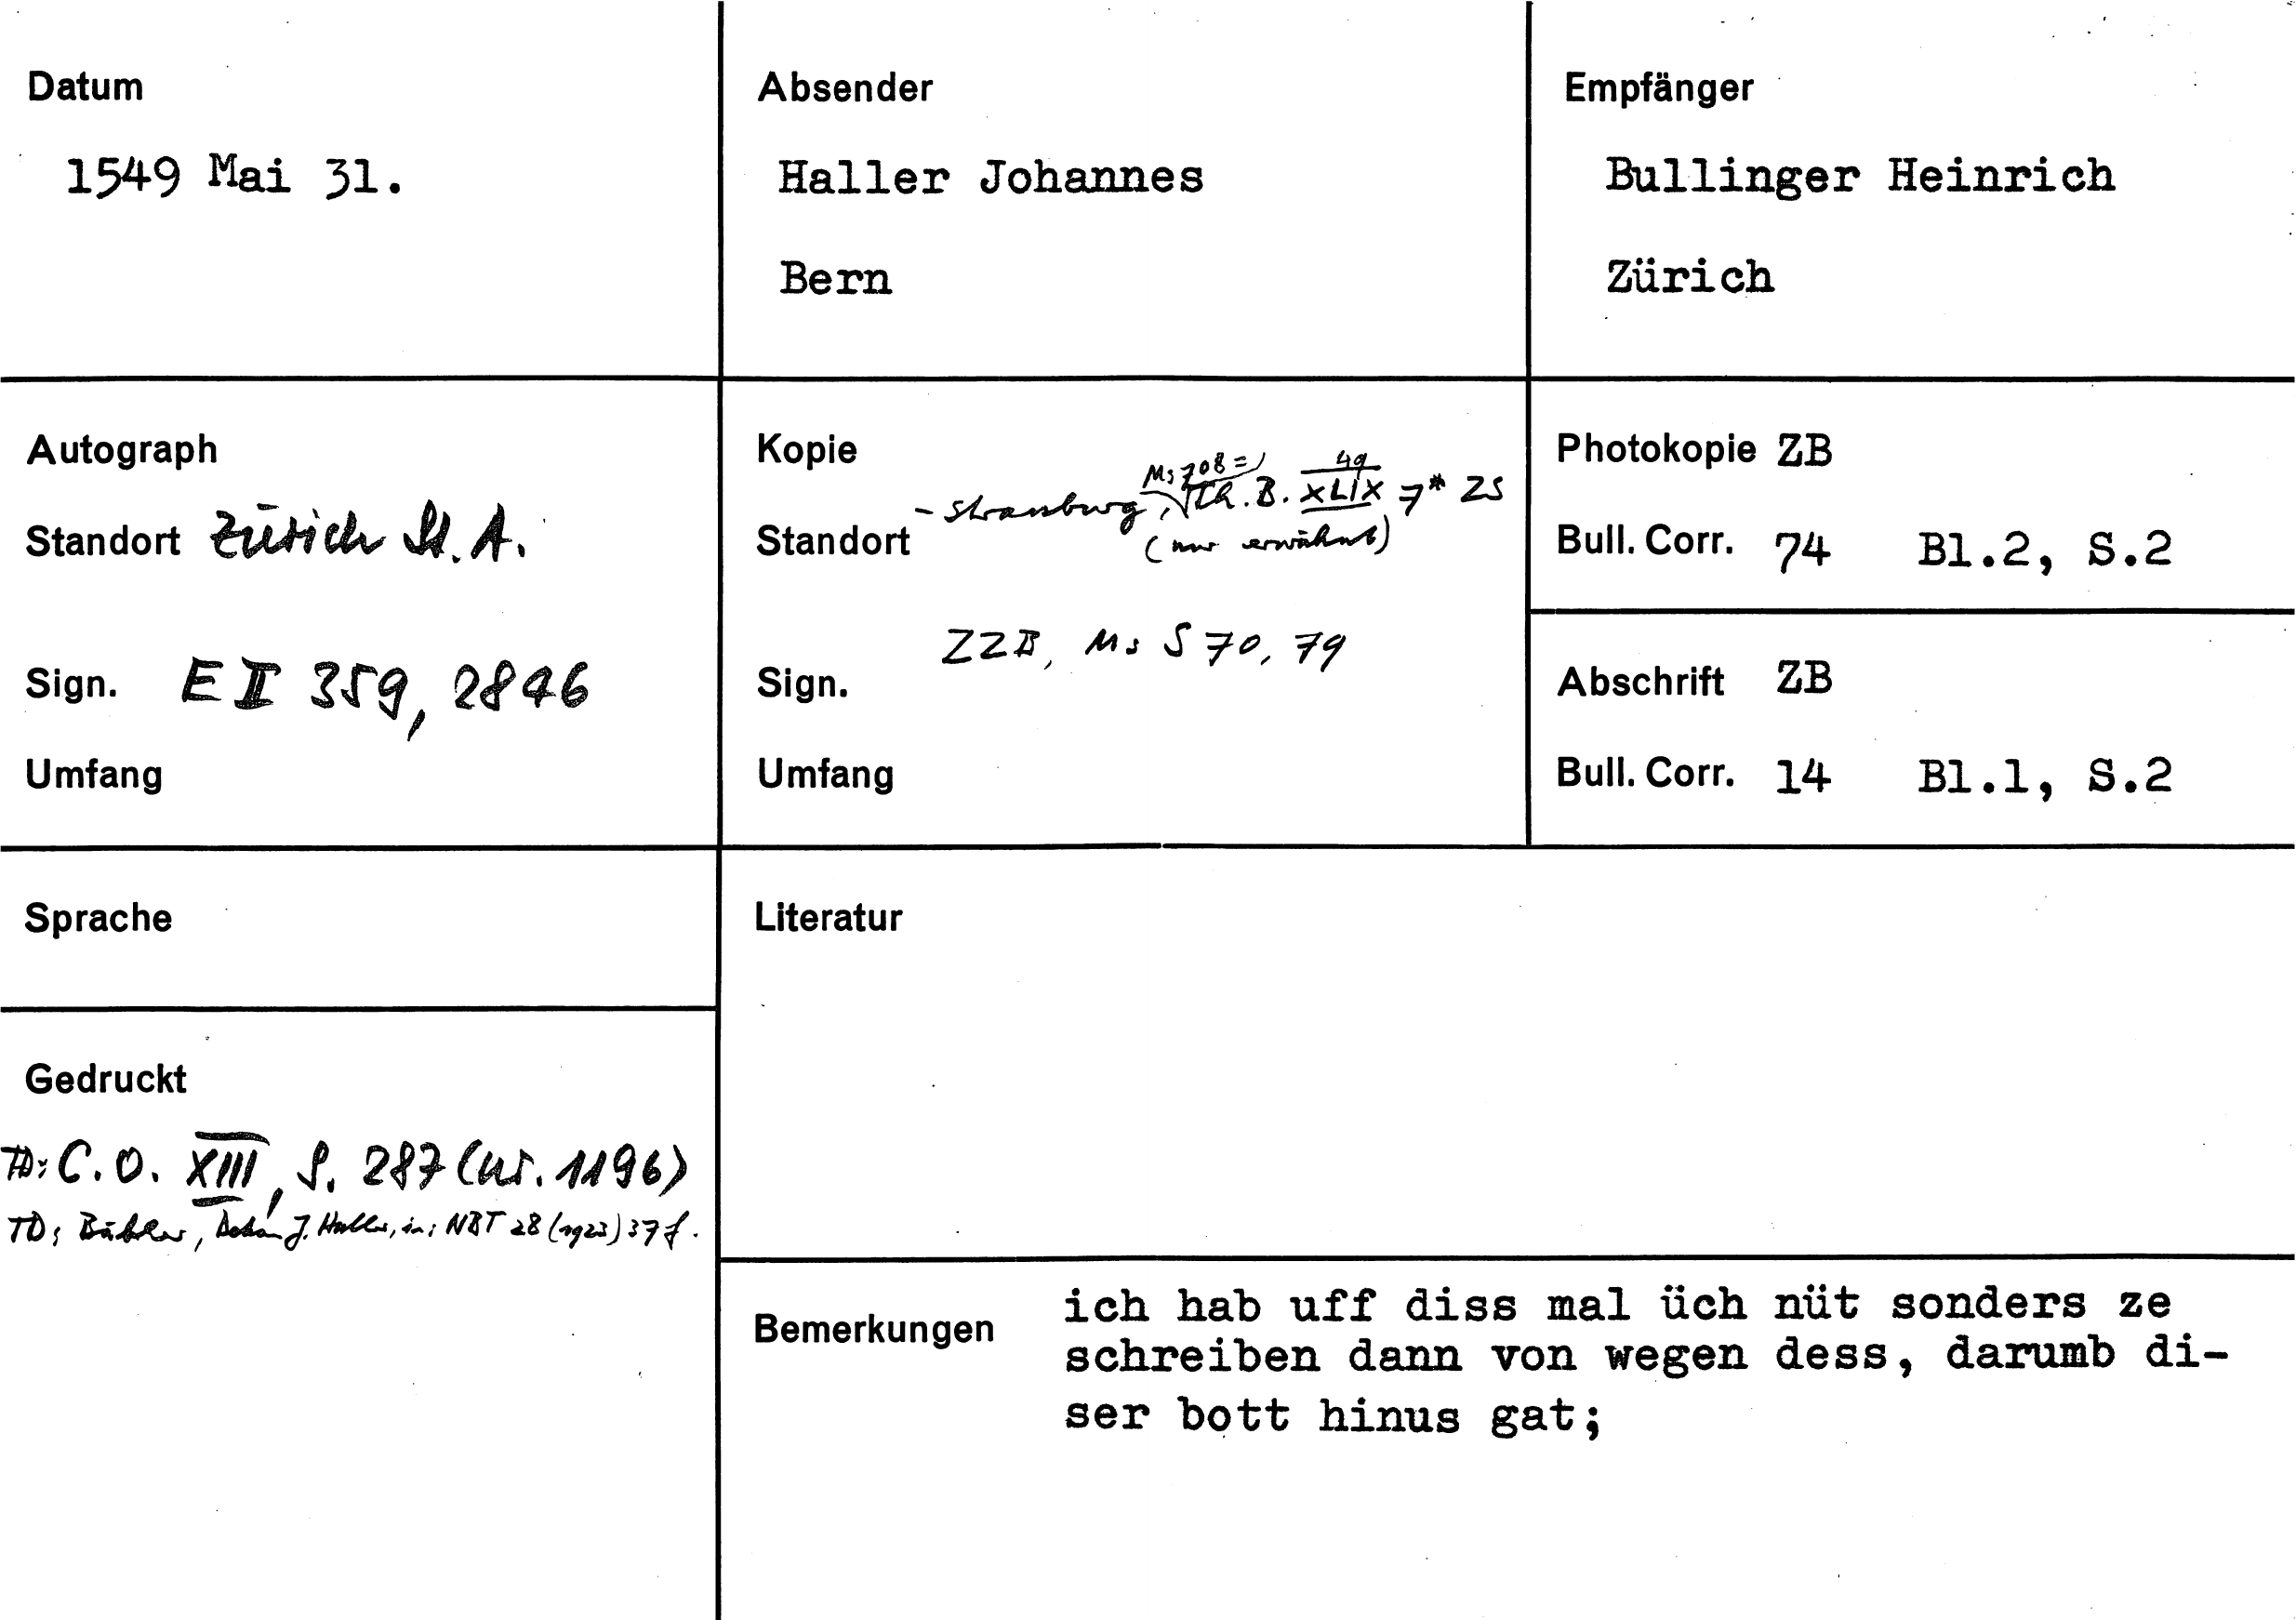 Datum
1549 Mai 31.
Absender
Haller Johannes
Bern
Empfänger
Bullinger Heinrich
Zürich
Autograph
Standort Zürich St. A.
Sign. E II 359, 2846
Umfang
Kopie
Ms 708=)
49
Standort - Strassburg, Th. B. XLIX 7* ZS
(nur erwähnt)
ZZB, Ms S 70, 79
Sign.
Umfang
Photokopie ZB
Bull. Corr. 74 Bl.2, S.2
Abschrift ZB
Bull. Corr. 14 Bl.1, S.2
Sprache
Literatur
Gedruckt
TD: C.O. XIII, S. 287 (Nr. 1196)
TD: Bähler, Dekan J. Haller, in: NBT 28 (1923) 37 f.
Bemerkungen
ich hab uff diss mal üch nüt sonders ze
schreiben dann von wegen dess, darumb di-
ser bott hinus gat;